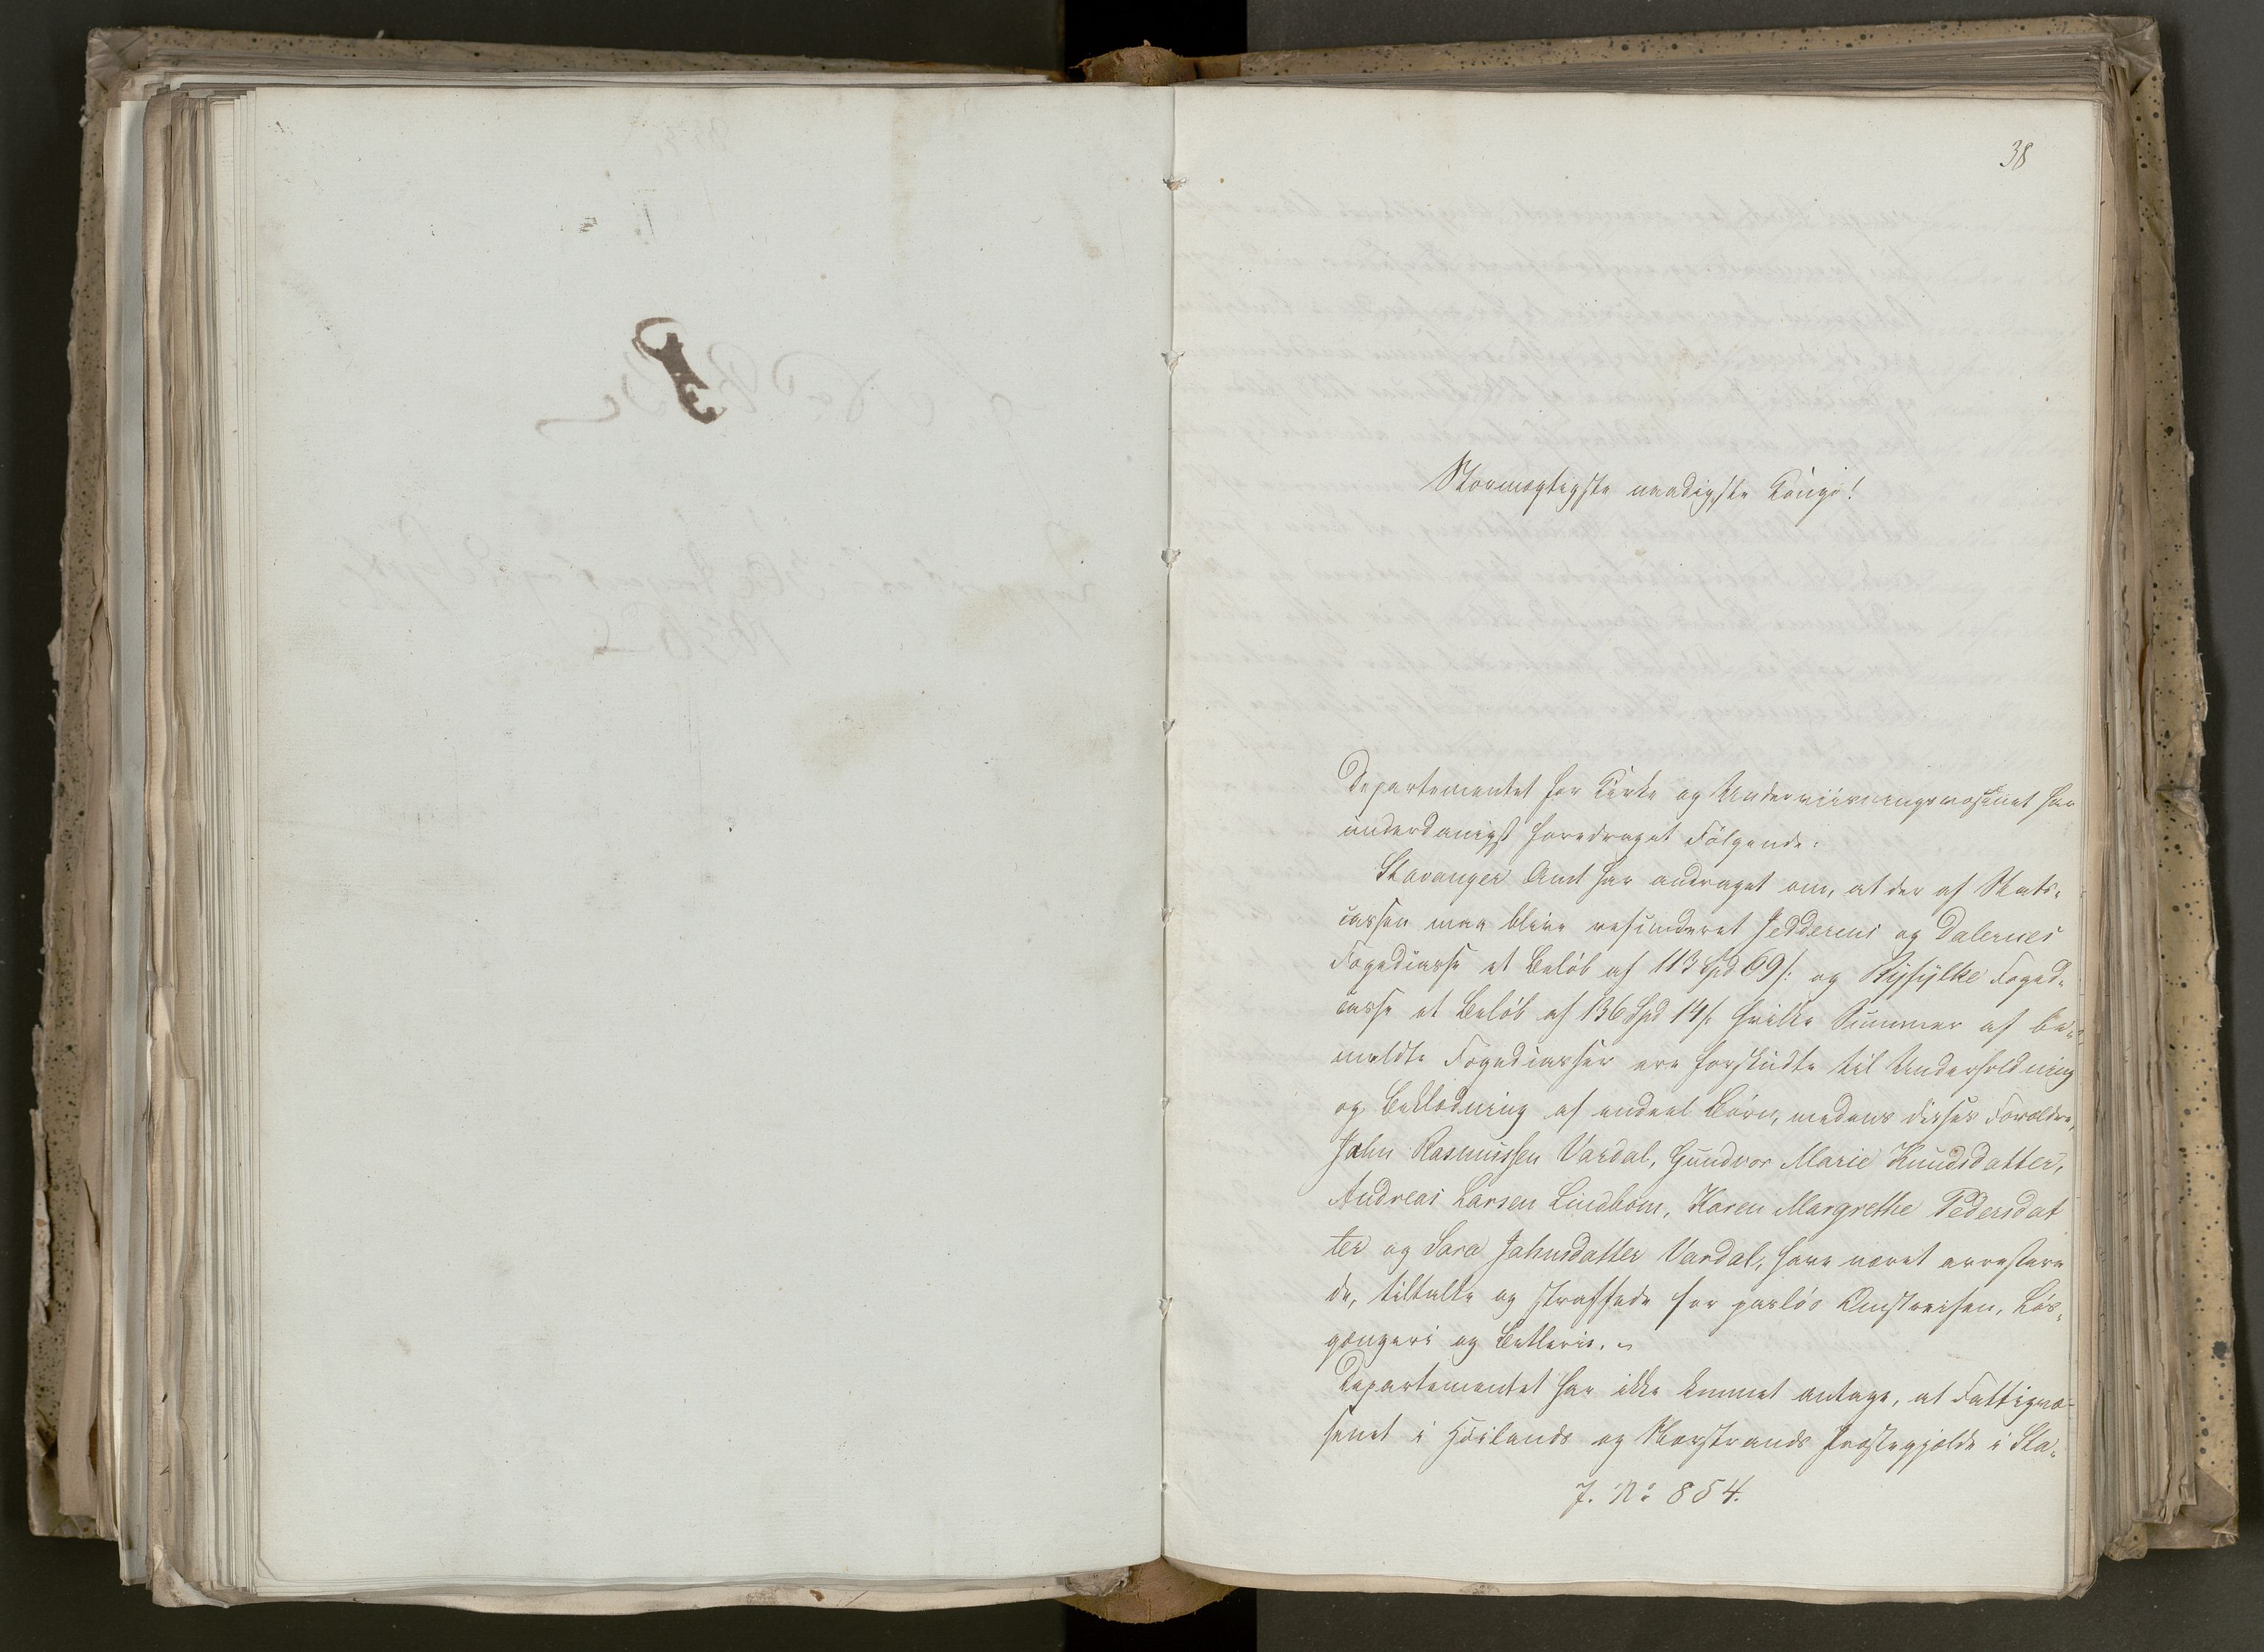 38
Stormægtigste naadigste Konge!
Departementet for Kirke og Underviisningsvæsenet har
underdanigst foredraget Følgende:
Stavanger Amt har andraget om, at der af Stats-
cassen maa blive refunderet Jedderens og Dalernes
Fogedcasse et Beløb af 113 Spd 69 s. og Ryfylke Foged-
casse et Beløb af 136 Spd 14 s. hvilke Summer af be-
meldte Fogedcasser ere forskudte til Underholdning
og Beklædning af endeel Børn, medens disses Forældre,
John Rasmussen Vardal, Gundvor Marie Knudsdatter,
Andreas Larsen Lindbom, Karen Margrethe Pedersdat
ter og Sara Johnsdatter Vardal, have været arrestere
de, tiltalte og straffede for pasløs Omstreifen, Løs-
gængeri og Betleri.
Departementet har ikke kunnet antage, at Fattigvæ-
senet i Høilands og Norstrands Præstegjælde i Sta-
J. No 854.